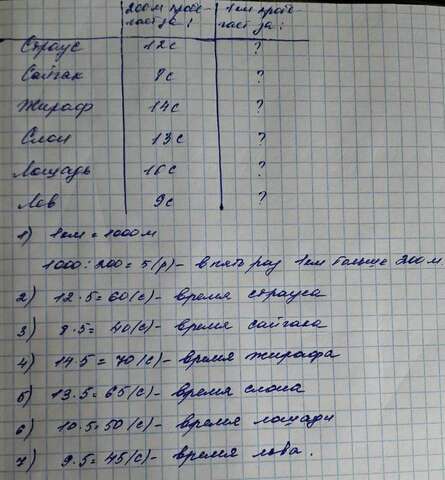 200м пробе- 1км пробе-
гает за: гает за:
Страус 12с ?
Сайгак 8с ?
Жираф 14с ?
Слон 13с ?
Лошадь 10с ?
Лев 9с ?
1) 1км = 1000м
1000:200=5(р)- в пять раз 1км больше 200м
2) 12·5=60(с)- время страуса
3) 8·5= 40(с)- время сайгака
4) 14·5=70(с)- время жирафа
5) 13·5=65(с)- время слона
6) 10·5=50(с)- время лошади
7) 9·5=45(с)- время льва.